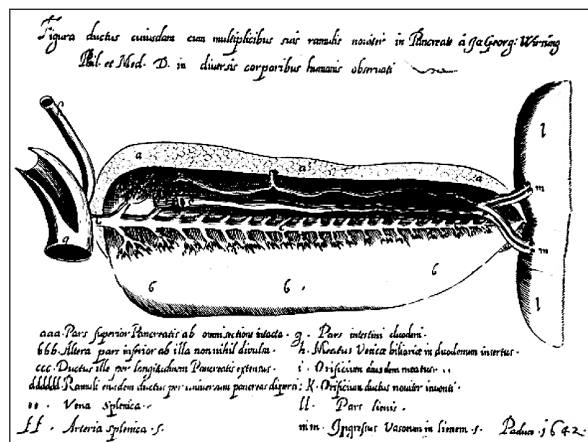 Figura ductus cuiusdam cum multiplicibus suis ramulis noviter in Pancreate à Jo. Georg: Wirsüng
Phil. et Med. D. in diversis corporibus humanis observati
f
l
a
a
a
m
g
c
m
b
b
b
l
aaa. Pars superior Pancreatis ab omni sectione intacta.
bbb. Altera pars inferior ab illa non nihil divulsa.
ccc. Ductus ille per longitudinem Pancreatis extensus.
dddddd. Ramuli eiusdem ductus per universum pancreas dispersi;
Vena Splenica.
ff. Arteria splenica. s.
g. Pars intestini duodeni.
h. Meatus Vesicæ biliariæ in duodenum insertus.
i. Orificium eiusdem meatus
K. Orificium ductus noviter inventi.
ll. Pars lienis.
mm. Ingressus Vasorum in lienem s.
Padua. 1642